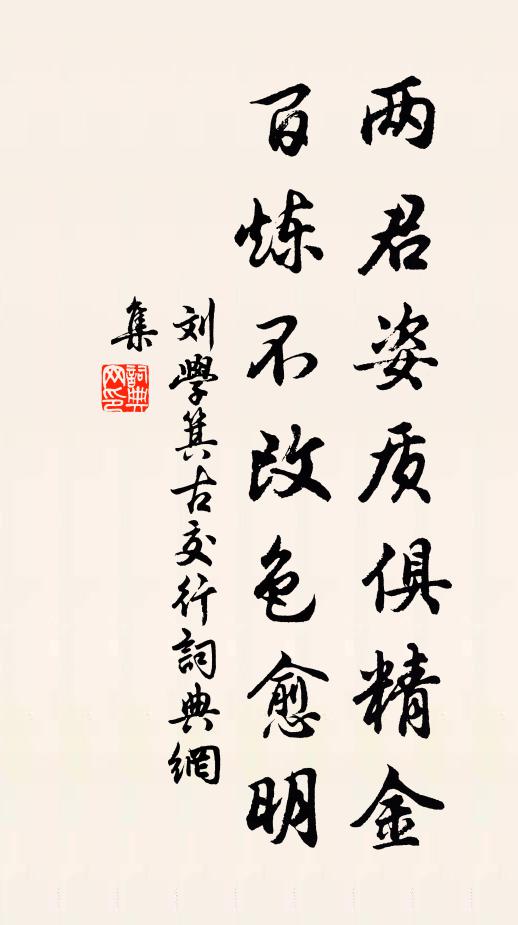 两君姿质俱精金
百炼不改色愈明
刘學箕古交行詞典網
集
詞典
网印